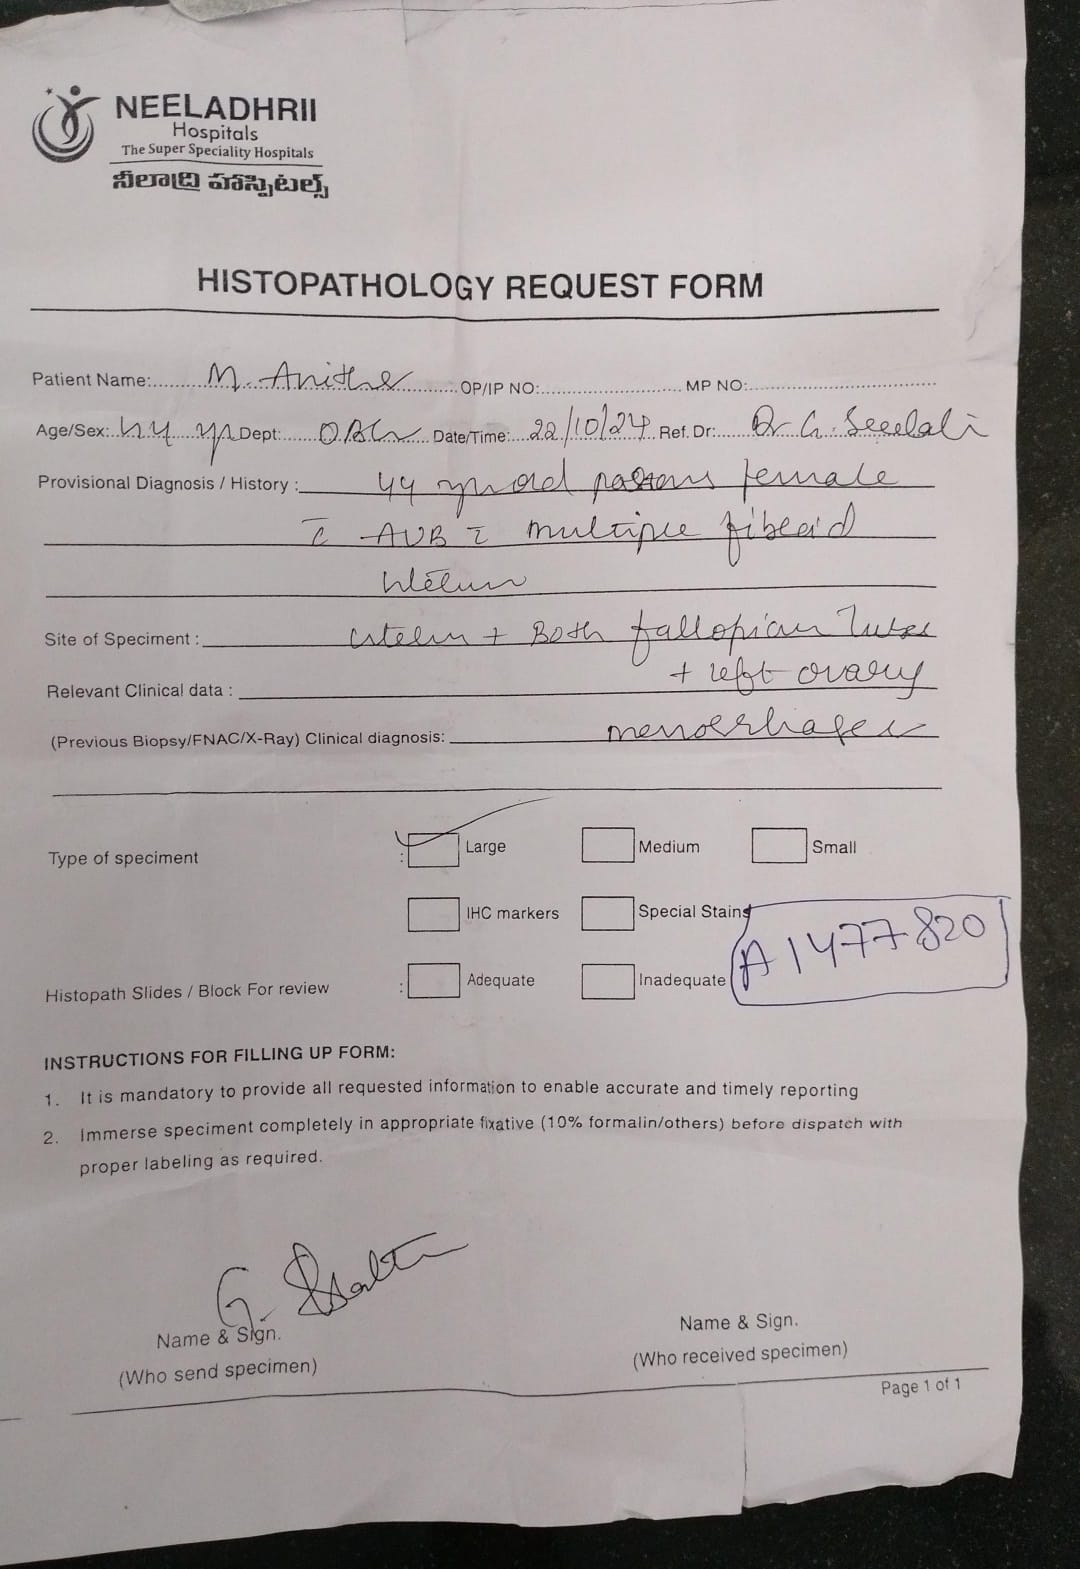 NEELADHRII
Hospitals
The Super Speciality Hospitals
నీలాద్రి హాస్పిటల్స్
HISTOPATHOLOGY REQUEST FORM
Patient Name: M. Anitha OP/IP NO: MP NO:
Age/Sex: 44 yr Dept: OBG Date/Time: 22/10/24 Ref. Dr: Dr G.
Provisional Diagnosis / History : 44 female
c̄ AUB c̄ multiple fibroid
uterus
Site of Speciment : uterus + Both fallopian Tubes
+ left ovary
Relevant Clinical data :
(Previous Biopsy/FNAC/X-Ray) Clinical diagnosis: menorrhagea
Type of speciment : Large Medium Small
IHC markers Special Stains
A1477820
Histopath Slides / Block For review : Adequate Inadequate
INSTRUCTIONS FOR FILLING UP FORM:
1. It is mandatory to provide all requested information to enable accurate and timely reporting
2. Immerse speciment completely in appropriate fixative (10% formalin/others) before dispatch with
proper labeling as required.
G.
Name & Sign.
(Who send specimen)
Name & Sign.
(Who received specimen)
Page 1 of 1